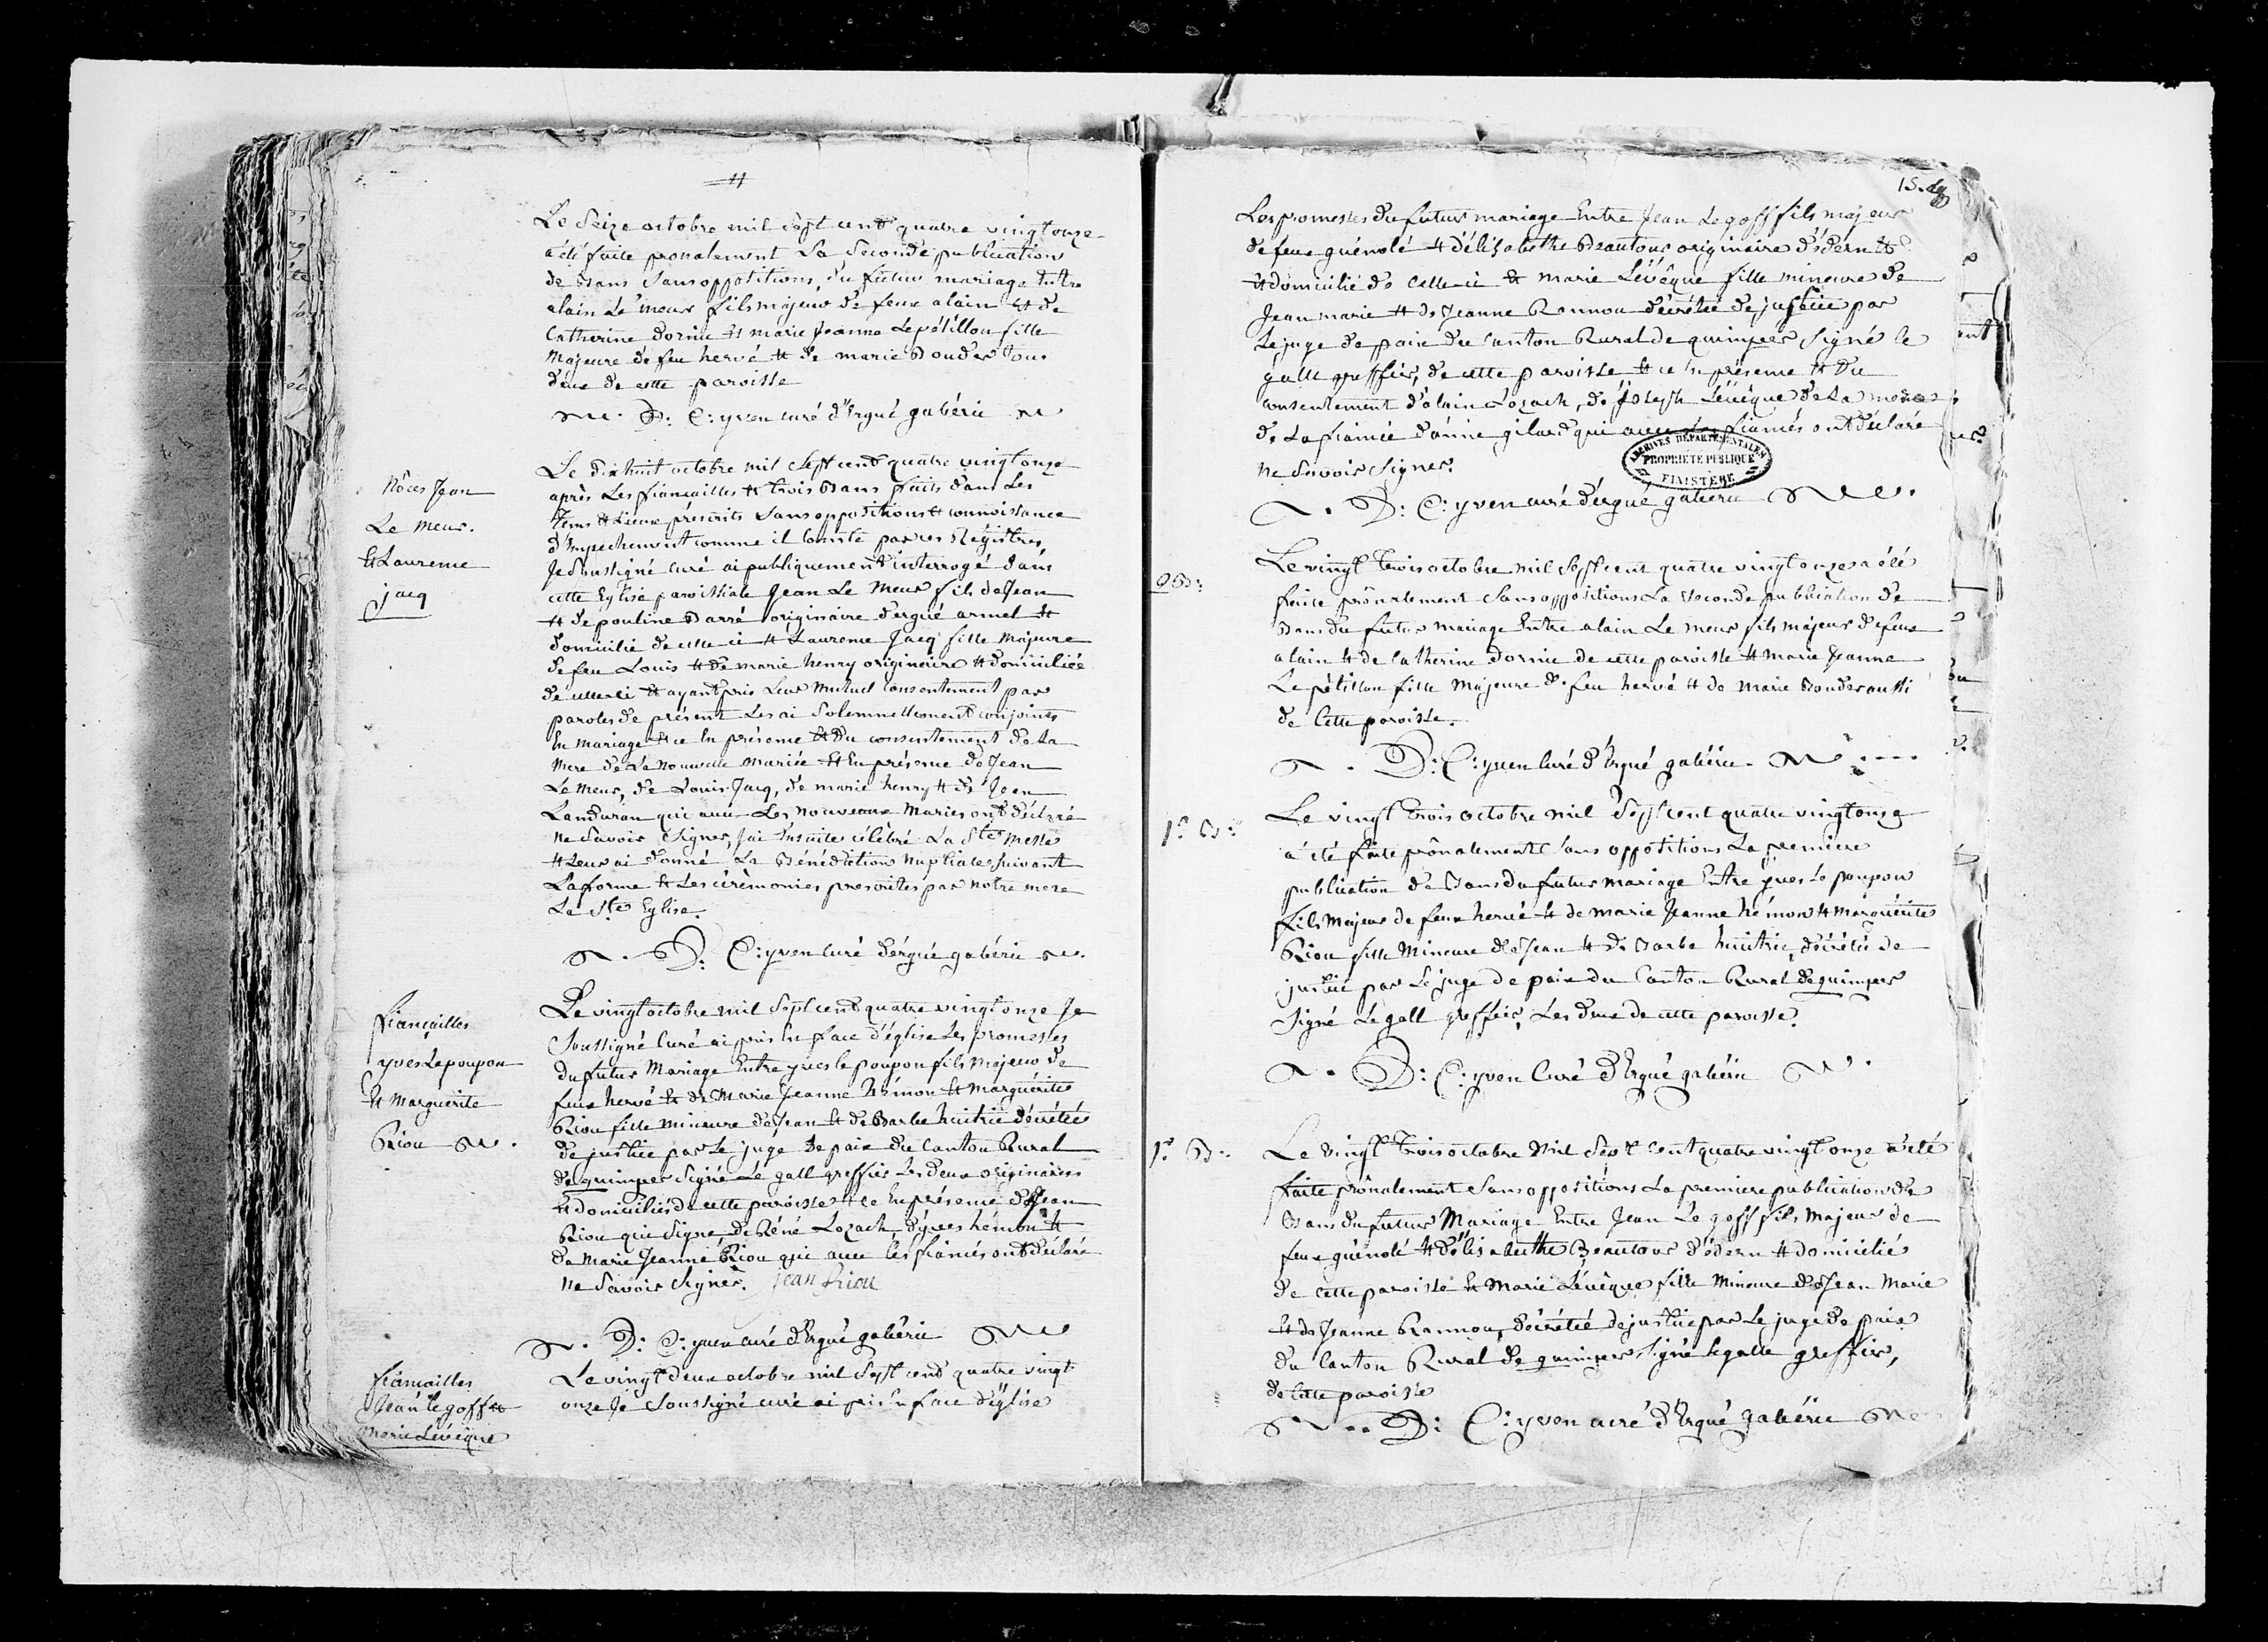 Le Seize octobre mil sept cent quatre vingt onze
a été faite pronalement La Seconde publication
de Bans Sans oppositions, du futur mariage Entre
alain Le meur fils majeur de feux alain et de
Catherine dornic et marie Jeanne Le pétillon fille
Majeure de feu hervé et de marie Bouder tous
deux de cette paroisse
D: C: yven curé d'Ergué gabéric
Nôces Jean
Le Meur.
Et Laurence
jacq
Le dixhuit octobre mil Sept cent quatre vingt onze
après Les fiançailles et trois Bans faits dans Les
Tems et Lieux préscrits Sans oppositions et connoissance
d'Empechement comme il Conste par ces Régistres,
Je Soussigné Curé ai publiquement interrogé dans
cette Eglise paroissiale Jean Le Meur fils de Jean
et de pouline Barré originaire d'ergué armel et
domicilié de celle ci et Laurence Jacq fille Majeure
de feu Louis et de marie henry originaire et domiciliée
de celle ci et ayant pris Leur Mutuel Consentement par
paroles de présent Les ai Solemnellement conjoints
En Mariage et ce En présence et Du consentement de La
Mere de La Nouvelle Mariée et En présence de Jean
Le Meur, de Louis Jacq, de marie henry et de Jean
Landuran qui avec Les Nouveaux Mariés ont déclaré
Ne Savoir Signer, j'ai Ensuite célébré La Ste Messe
et Leur ai donné La Bénédiction Nuptiale Suivant
La forme et Les cérèmonies prescrites par notre mere
La Ste Eglise.
D: C: yven curé d'érgué gabéric
fiançailles
yves Le poupon
Et Marguerite
Riou
Le vingt octobre mil Sept cent quatre vingt onze Je
Soussigné Curé ai pris En face d'église Les promesses
du futur Mariage Entre yves le poupon fils Majeur de
feux hervé et de Marie Jeanne hémon et Marguérite
Riou fille mineure de Jean et de Barbe huitric décrétée
de justice par Le juge De paix du Canton Rural
de quimper Signé Le gall greffier Les deux originaires
et domiciliés de cette paroisse et ce En présence de Jean
Riou qui Signe, de Réné Lozach, d'yves hémon et
de Marie Jeanne Riou qui avec les fiancés ont déclaré
ne Savoir Signer. jean Riou
D: C: yven curé d'Ergué gabéric
fiançailles
Jean Le goff et
Marie Lévêque
Le vingt deux octobre mil Sept cent quatre vingt
onze Je Soussigné curé ai pris En face d'église
15.
Les promesses du futur mariage Entre Jean Le goff fils majeur
de feux guénolé et d'élisabethe Beautour originaire d'édern et
et domicilié de celle ci et marie Lévêque fille mineure de
Jean marie et de Jeanne Rannou décrétée de justice par
Le juge de paix du Canton Rural de quimper Signé le
galle greffier, de cette paroisse et ce En présence et du
consentement d'alain Lozach, de joseph Lévêque de La mere
de La fiancée d'anne gilard qui avec Les fiancés ont déclaré
Ne Savoir Signer.
ARCHIVES DÉPARTEMENTALES
PROPRIÉTÉ PUBLIQUE
FINISTÈRE
D: C: yven curé d'érgué gabéric
2 B:
Le vingt Trois octobre mil Sept cent quatre vingt onze a été
faite prônalement Sans oppositions La Seconde publication de
Bans du futur mariage Entre alain Le meur fils majeur de feux
alain et de Catherine Dornic de cette paroisse et marie Jeanne
Le pétillon fille Majeure de feu hervé et de Marie Bouder aussi
de Cette paroisse.
D: C: yven Curé d'Ergué gabéric
1er B:
Le vingt trois octobre mil Sept cent quatre vingt onze
a été faite prônalement Sans oppositions La premiere
publication de Bans du futur mariage Entre yves Le poupon
fils Majeur de feux hervé et de marie Jeanne hémon et Marguérite
Riou fille Mineure de Jean et de Barbe huitric, décrétée de
justice par Le juge de paix du Canton Rural de quimper
Signé Le gall greffier, Les deux de cette paroisse.
D: C: yven Curé d'Ergué gabéric
1er B:
Le Vingt Trois octobre Mil Sept Cent quatre vingt onze a été
faite prônalement Sans oppositions La premiere publication de
Bans du futur Mariage Entre Jean Le goff fils Majeur de
feux guénolé et d'élisabethe Beautour d'édern et domicilié
de cette paroisse et Marie Lévêque fille Mineure de Jean Marie
et de Jeanne Rannou, décrétée de justice par Le juge de paix
du Canton Rural de quimper Signé Le galle greffier,
de Cette paroisse
D: C: yven curé d'Ergué gabéric